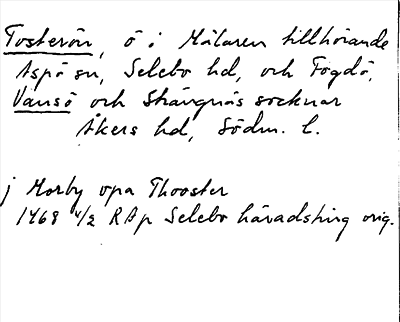 Tosterön, ö i Mälaren tillhörande
Aspö sn, Selebo hd, och Fogdö,
Vansö och Strängnäs socknar
Åkers hd, Södm. l.
j Morby opa Thooster
1468 4/2 RAp Selebo häradsting orig.